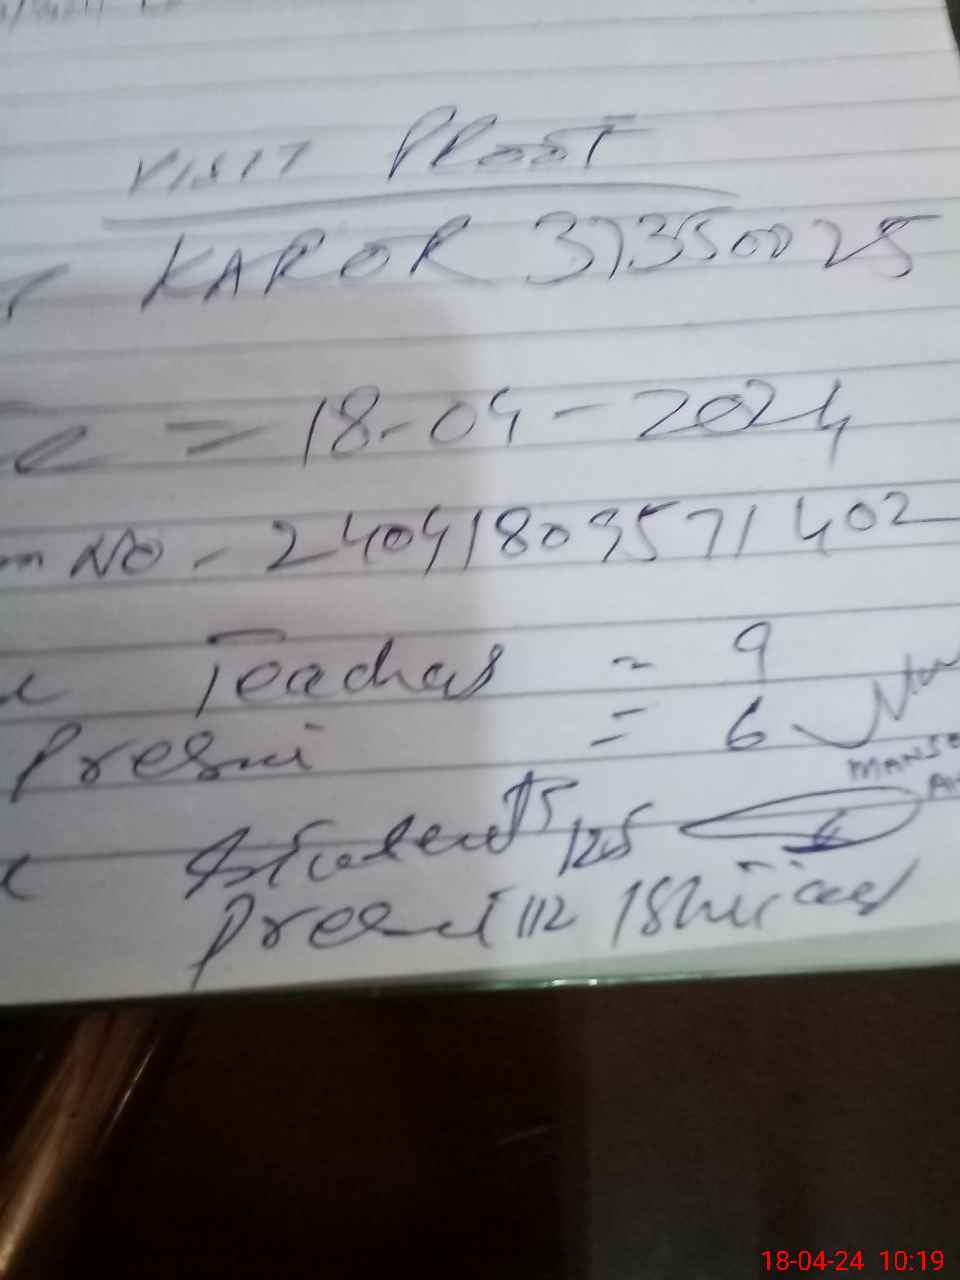 VISIT PROOF
KAROR 37350025
= 18-04-2024
NO - 24041809571402
Teachers = 9
Present = 6
MANSO
Students 125
Present 112
18-04-24 10:19